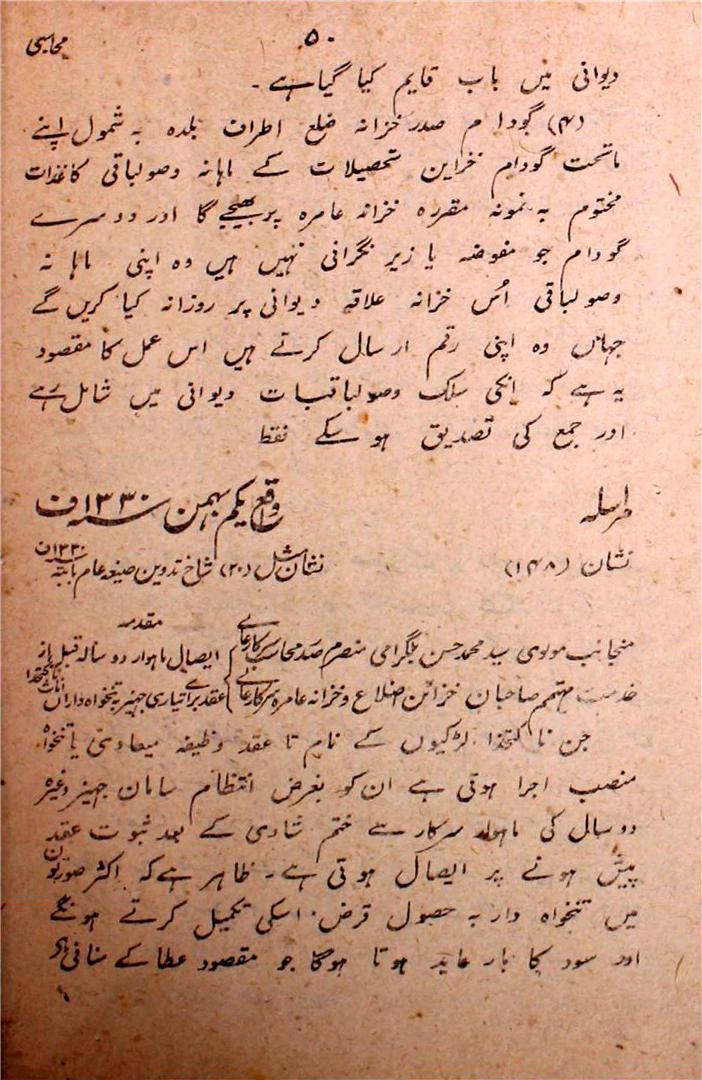 ۵۰
محاسبی
دیوانی میں باب قایم کیا گیا ہے ۔
(۴) گودام صدر خزانہ ضلع اطراف بلدہ بہ شمول اپنے
ماتحت گودام خزاین تحصیلات کے ماہانہ وصولباقی کاغذات
مختوم بہ نمونہ مقررہ خزانہ عامرہ پر بھیجے گا اور دوسرے
گودام جو مفوضہ یا زیر نگرانی نہیں ہیں وہ اپنی ماہانہ
وصولباقی اُس خزانہ علاقہ دیوانی پر روزانہ کیا کریں گے
جہاں وہ اپنی رقم ارسال کرتے ہیں اس عمل کا مقصود
یہ ہے کہ انکی سلک وصولباقیات دیوانی میں شامل رہے
اور جمع کی تصدیق ہو سکے فقط
مراسلہ واقع یکم بہمن ۱۳۳۰ سنہ ف
نشان (۱۴۸) نشان مثل (۲۰) شاخ تدوین صیغہ عام بابتہ ۱۳۳۰ ف
مقدمہ
منجانب مولوی سید محمد حسن بلگرامی منصرم صدر محاسب سرکار عالی ایصال ماہوار دو سالہ قبل از
خدمت مہتمم صاحبان خزائن اضلاع و خزانہ عامرہ سرکار عالی عقد برائے تیاری جہیز بہ تنخواہ داران اناث ناکتخدا
جن ناکتخدا لڑکیوں کے نام تا عقد وظیفہ میعادی یا تنخواہ
منصب اجرا ہوتی ہے ان کو بغرض انتظام سامان جہیز وغیرہ
دو سال کی ماہوار سرکار سے ختم شادی کے بعد ثبوت عقد
پیش ہونے پر ایصال ہوتی ہے ۔ ظاہر ہے کہ اکثر صورتوں
میں تنخواہ دار بہ حصول قرض اسکی تکمیل کرتے ہونگے
اور سود کا بار عاید ہوتا ہوگا جو مقصود عطا کے منافی ہے